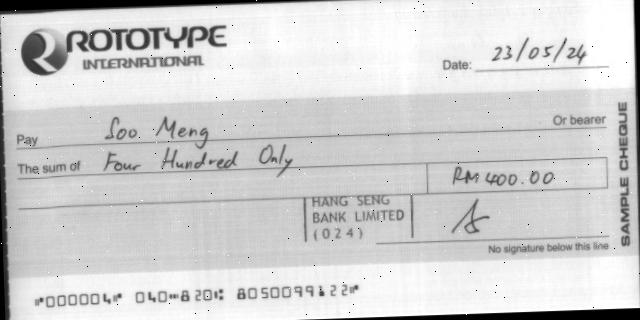 ROTOTYPE
INTERNATIONAL
Date: 23/05/24
Pay Soo Meng Or bearer
The sum of Four Hundred Only
RM400.00
HANG SENG
BANK LIMITED
(024)
No signature below this line
SAMPLE CHEQUE
⑈000004⑈ 040⑉820⑆ 8050099122⑈